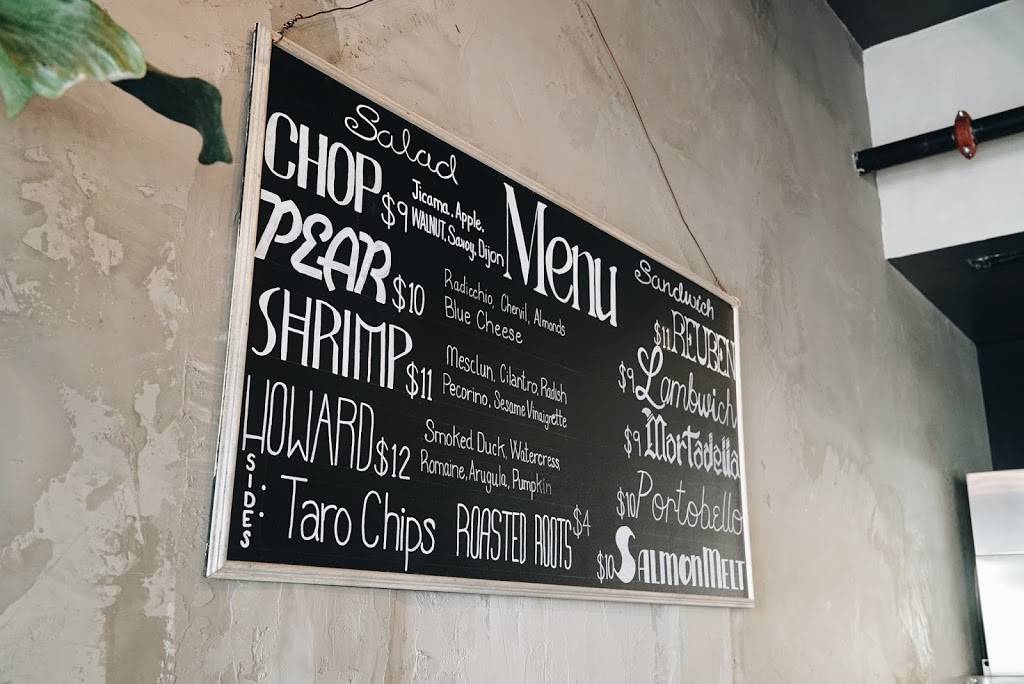 Menu
Salad
CHOP $9 Jicama, Apple,
WALNUT, Savoy, Dijon
PEAR $10 Radicchio, Chervil, Almonds
Blue Cheese
SHRIMP $11 Mesclun, Cilantro, Radish
Pecorino, Sesame Vinaigrette
HOWARD $12 Smoked Duck, Watercress,
Romaine, Arugula, Pumpkin
SIDES: Taro Chips ROASTED ROOTS $4
Sandwich
$11 REUBEN
$9 Lambwich
$9 Mortadella
$10 Portobello
$10 SALMON MELT